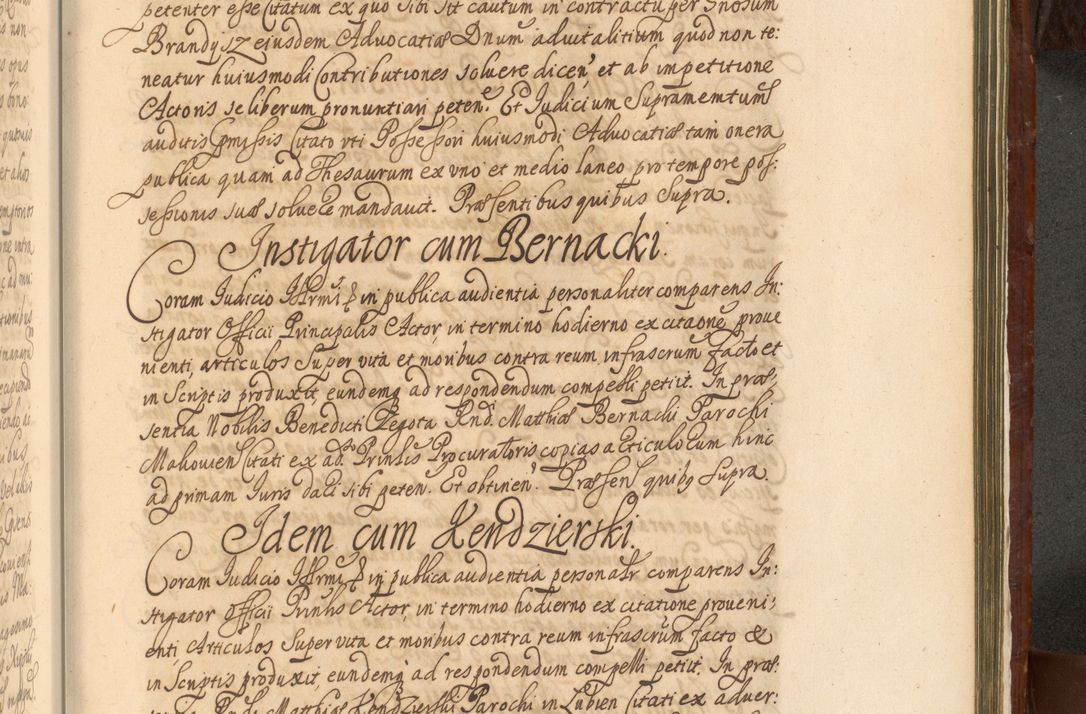 petenter esse Citatum ex quo sibi sit cautum in contractu per
Brandysz eiusdem Advocatiæ Dnum advitalitium quod non te:
neatur huiusmodi Contributiones solvere dicen' et ab impetitione
Actoris se liberum pronuntiari peten. Et Iudicium Supramemtum
auditis præmissis Citato uti Possessori huiusmodi Advocatiæ tam onera
publica quam ad Thesaurum ex uno et medio laneo pro tempore pos:
sessionis suæ solvere mandavit. Præsentibus quibus Supra.
Instigator cum Bernacki.
Coram Iudicio in publica audientia personaliter comparens In:
stigator Officii Principalis Actor, in termino hodierno ex citaone prove
nienti, articulos Super vita et moribus contra reum infrascrum facto et
in Scriptis produxit, eundemq ad respondendum compelli petiit. In præ:
sentia Nobilis Benedicti Zegota Rndi Matthiæ Bernacki Parochi
Makovien Citati ex ad. Prinlis Procuratoris copias articulorum hinc
ad primam Iuris dari sibi peten. Et obtinen'. Præsen quibq Supra.
Idem cum Kendzierski.
Coram Iudicio in publica audientia personalr comparens In:
stigator Officii Prinlis Actor, in termino hodierno ex citatione proveni:
enti, Articulos Super vita et moribus contra reum infrascrum facto &
in Scriptis produxit, eundemq ad respondendum compelli petiit. In præ:
Rndi Matthiæ Kendzierski Parochi in Lubien Citati ex adver: